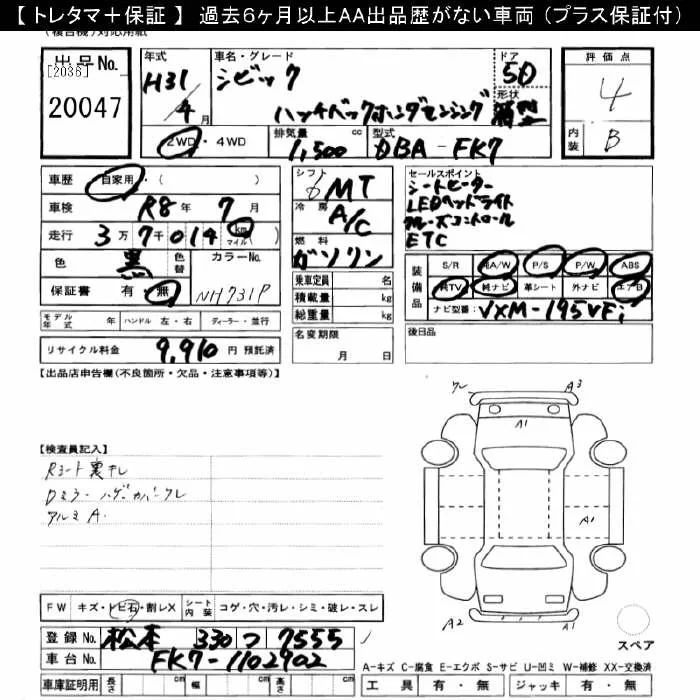 【 トレタマ＋保証 】 過去6ヶ月以上AA出品歴がない車両（プラス保証付）
(複合機)対応用紙
出品No.
[2036]
20047
年式 H31/4月
車名・グレード シビック
ハッチバックホンダセンシング
ドア 5D
形状
評価点 4
内装 B
2WD・4WD
排気量 1,500 cc
型式 DBA-FK7
車歴 自家用・( )
車検 R8年 7月
走行 3万7千014 km マイル( )
色 黒 色替 カラーNo. NH731P
保証書 有・無
シフト 6 MT
冷房 A/C
燃料 ガソリン
乗車定員 名
積載量 kg
総重量 kg
名変期限
月 日
セールスポイント
シートヒーター
LEDヘッドライト
クルーズコントロール
ETC
装備品
S/R 純A/W P/S P/W ABS
純TV 純ナビ 革シート 外ナビ エアB
ナビ型番： VXM-195VFi
モデル年式 年 ハンドル 左・右 ディーラー・並行
後日品
リサイクル料金 9,910 円 預託済
【出品店申告欄(不良箇所・欠品・注意事項等)】
【検査員記入】
Rシート裏キレ
Dミラー ハゲ. カバークレ
アルミ A.
ワレ
A3
A1
A1
A2
A1
FW キズ・トビ石・割レX シート内装 コゲ・穴・汚レ・シミ・破レ・スレ
登録No. 松本 330 つ 7555
車台No. FK7-1102902
車庫証明用 長さ cm 幅 cm 高さ cm
スペア
A-キズ C-腐食 E-エクボ S-サビ U-凹ミ W-補修 XX-交換済
工具 有・無 ジャッキ 有・無